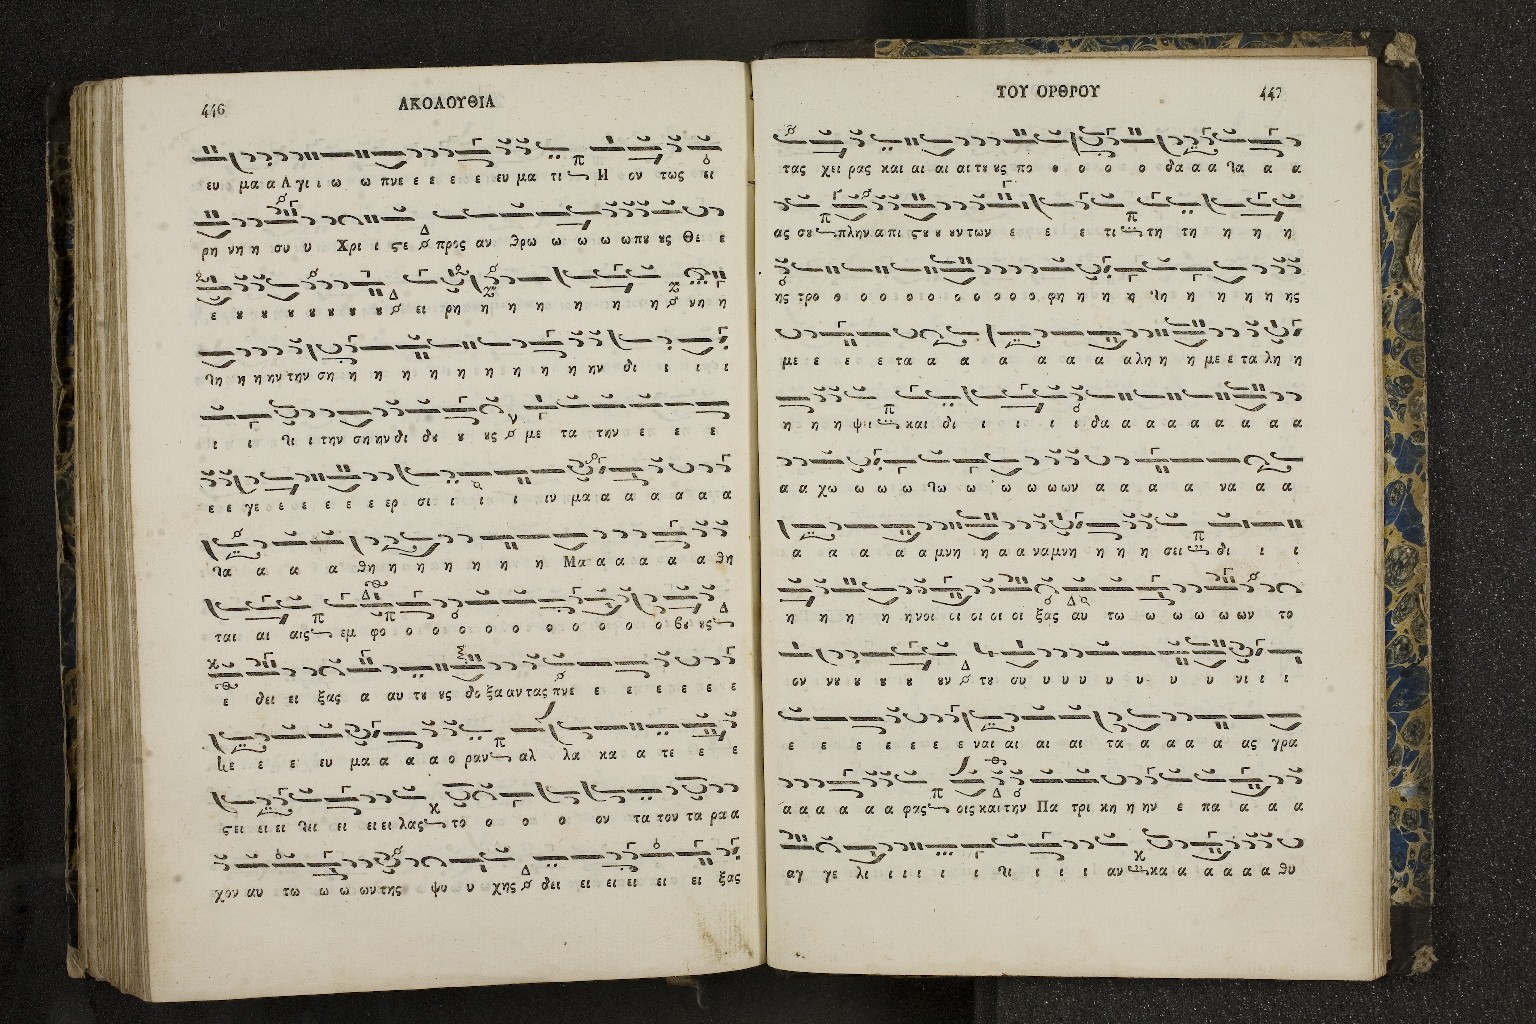 446
ΑΚΟΛΟΥΘΙΑ
ευ μα α Α γι ι ω ω πνε ε ε ε ε ευ μα τι Η ον τως ει
ρη νη η συ υ Χρι ι ςε προς αν θρω ω ω ω ωπου ους Θε ε
ε ου ου ου ου ου ου ου ει ρη η η η η η η νη η
λη η η ην την ση η η η η η η η η η η ην δι ι ι ι
ι ι λι ι την ση ην δι δου ου ους με τα την ε ε ε
ε ε γε ε ε ε ε ε ερ σι ι ι ι ιν μα α α α α α α
λα α α α θη η η η η η η Μα α α α α α θη
ται αι αις εμ φο ο ο ο ο ο ο ο ο ο ο ο βου ους
ε δει ει ξας α αυ του ους δο ξα αν τας πνε ε ε ε ε ε ε
ε ε ε ευ μα α α α ο ραν αλ λα κα α τε ε ε
ςει ει ει λει ει ει ει λας το ο ο ο ον τα τον τα ρα α
χον αυ τω ω ω ων της ψυ υ χης δει ει ει ει ει ει ξας
ΤΟΥ ΟΡΘΡΟΥ
447
τας χει ρας και αι αι αι του ους πο ο ο ο ο δα α α λα α α
ας σου πλην α πι ςου ου ουν των ε ε ε τι τη τη η η η
ης τρο ο ο ο ο ο ο ο ο ο ο φη η η η λη η η η η ης
με ε ε ε τα α α α α α α α λη η η με ε τα λη η
η η η ψει και δι ι ι ι ι δα α α α α α α α α
α α χω ω ω ω λω ω ω ω ω ων α α α α να α α
α α α α α μνη η α α να μνη η η η σει δι ι ι
η η η η η νοι οι οι οι οι ξας αυ τω ω ω ω ω ων το
ον νου ου ου ου ουν του συ υ υ υ υ υ υ υ νι ι ι
ε ε ε ε ε ε ε ναι αι αι αι τα α α α α ας γρα
α α α α α α φας οις και την Πα τρι κη η ην ε πα α α α
αγ γε λι ι ι ι ι λι ι ι ι αν κα α α α α α θυ